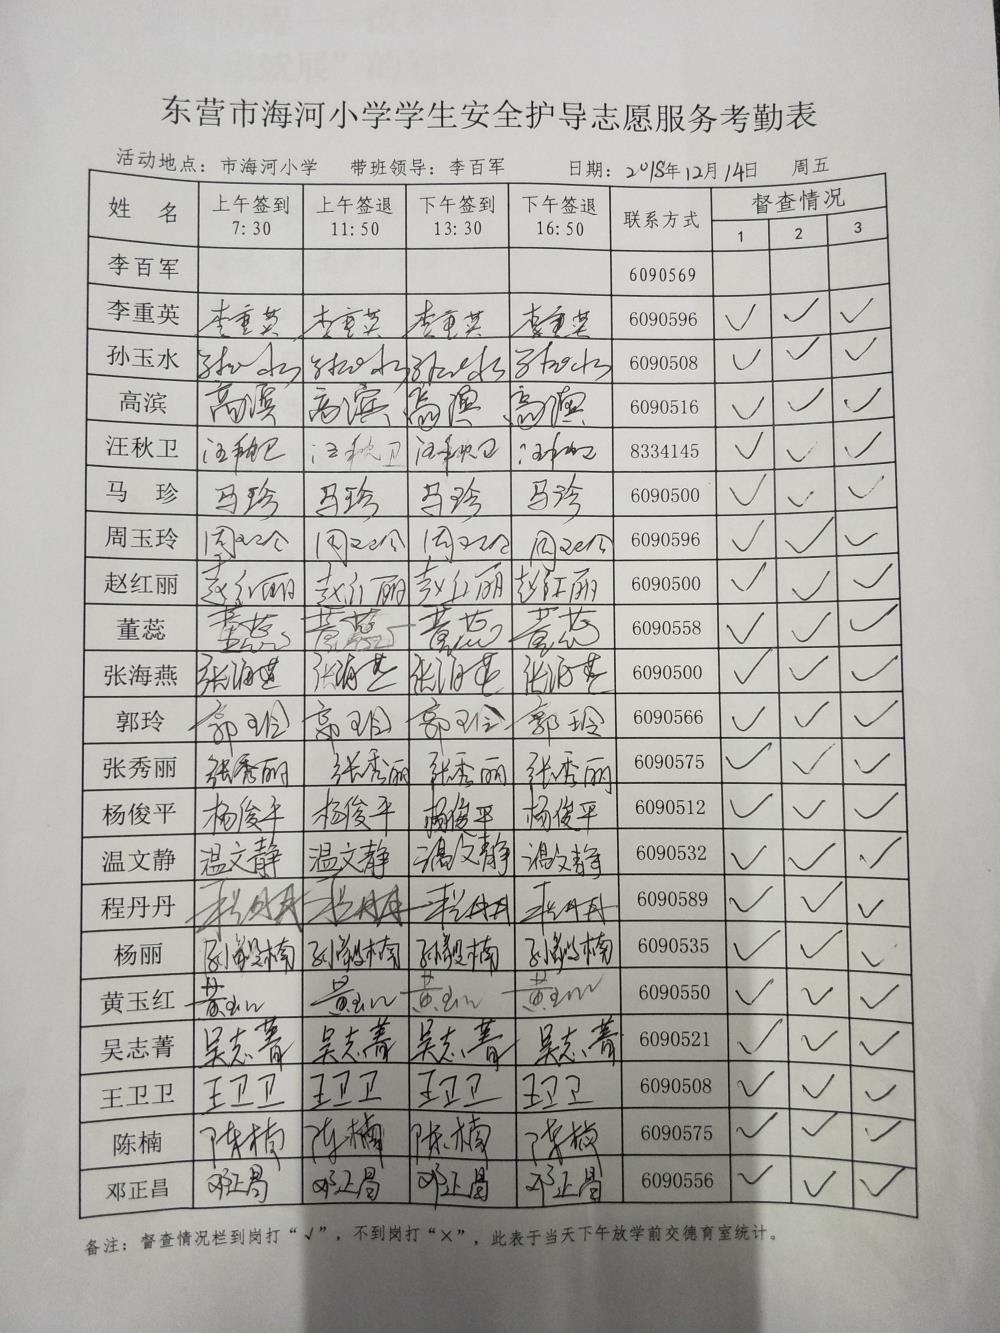 东营市海河小学学生安全护导志愿服务考勤表
活动地点：市海河小学 带班领导：李百军 日期：2018年12月14日 周五
姓 名 上午签到 7:30 上午签退 11:50 下午签到 13:30 下午签退 16:50 联系方式 督查情况 1 2 3
李百军 6090569
李重英 李重英 李重英 李重英 李重英 6090596 ✓ ✓ ✓
孙玉水 孙玉水 孙玉水 孙玉水 孙玉水 6090508 ✓ ✓ ✓
高滨 高滨 高滨 高滨 高滨 6090516 ✓ ✓ ✓
汪秋卫 汪秋卫 汪秋卫 汪秋卫 汪秋卫 8334145 ✓ ✓ ✓
马 珍 马珍 马珍 马珍 马珍 6090500 ✓ ✓ ✓
周玉玲 周玉玲 周玉玲 周玉玲 周玉玲 6090596 ✓ ✓ ✓
赵红丽 赵红丽 赵红丽 赵红丽 赵红丽 6090500 ✓ ✓ ✓
董蕊 董蕊 董蕊 董蕊 董蕊 6090558 ✓ ✓ ✓
张海燕 张海燕 张海燕 张海燕 张海燕 6090500 ✓ ✓ ✓
郭玲 郭玲 郭玲 郭玲 郭玲 6090566 ✓ ✓ ✓
张秀丽 张秀丽 张秀丽 张秀丽 张秀丽 6090575 ✓ ✓ ✓
杨俊平 杨俊平 杨俊平 杨俊平 杨俊平 6090512 ✓ ✓ ✓
温文静 温文静 温文静 温文静 温文静 6090532 ✓ ✓ ✓
程丹丹 程丹丹 程丹丹 程丹丹 程丹丹 6090589 ✓ ✓ ✓
杨丽 6090535 ✓ ✓ ✓
黄玉红 黄玉红 黄玉红 黄玉红 黄玉红 6090550 ✓ ✓ ✓
吴志菁 吴志菁 吴志菁 吴志菁 吴志菁 6090521 ✓ ✓ ✓
王卫卫 王卫卫 王卫卫 王卫卫 王卫卫 6090508 ✓ ✓ ✓
陈楠 陈楠 陈楠 陈楠 陈楠 6090575 ✓ ✓ ✓
邓正昌 邓正昌 邓正昌 邓正昌 邓正昌 6090556 ✓ ✓ ✓
备注：督查情况栏到岗打“√”，不到岗打“×”，此表于当天下午放学前交德育室统计。